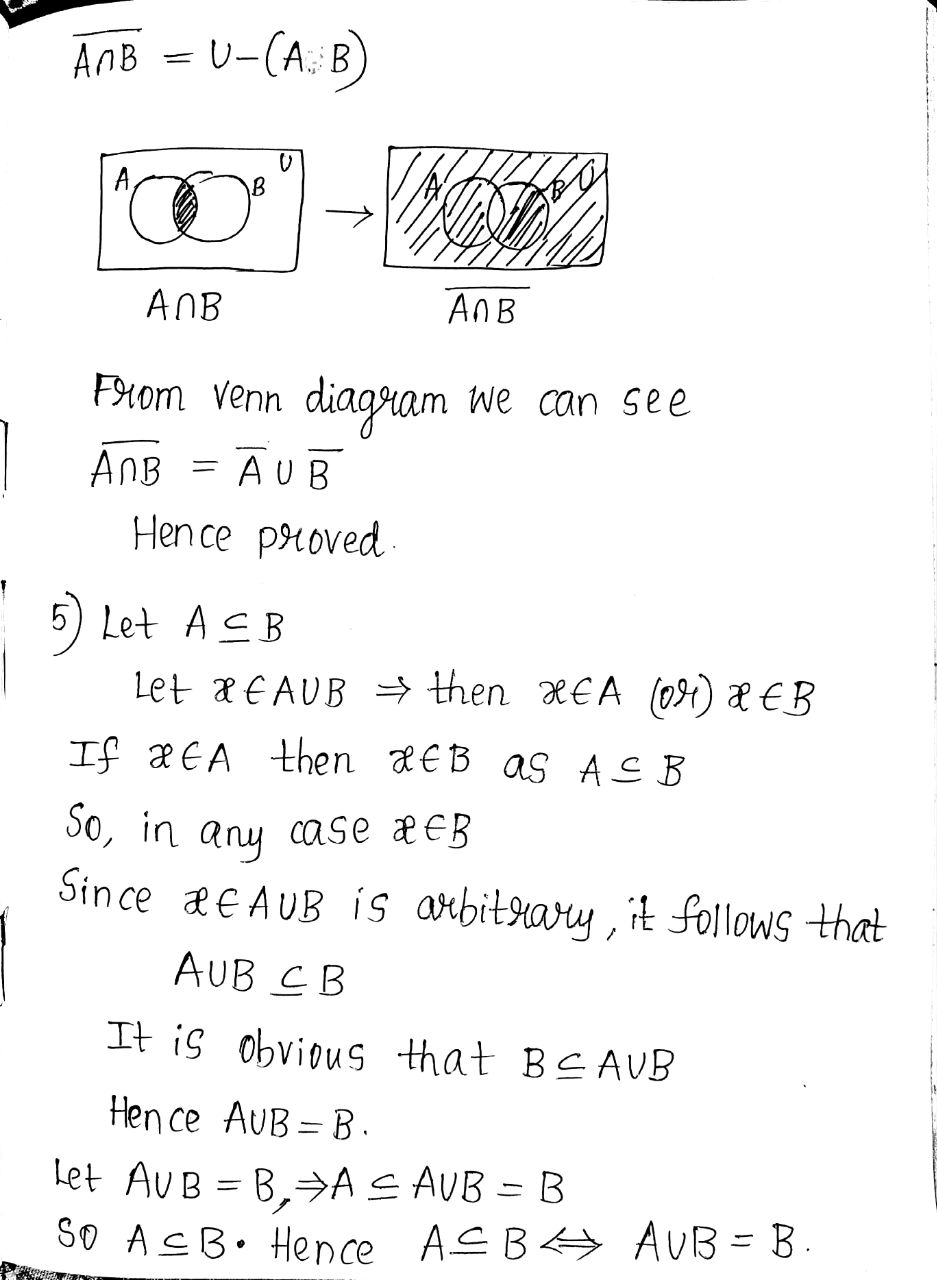 A̅∩̅B̅ = U-(A B)
A B U
A B U
A∩B A̅∩̅B̅
From venn diagram we can see
A̅∩̅B̅ = A̅ ∪ B̅
Hence proved.
5) Let A ⊆ B
Let x∈A∪B ⇒ then x∈A (or) x∈B
If x∈A then x∈B as A ⊆ B
So, in any case x∈B
Since x∈A∪B is arbitrary, it follows that
A∪B ⊆ B
It is obvious that B ⊆ A∪B
Hence A∪B = B.
Let A∪B = B, ⇒ A ⊆ A∪B = B
So A ⊆ B. Hence A ⊆ B ⇔ A∪B = B.